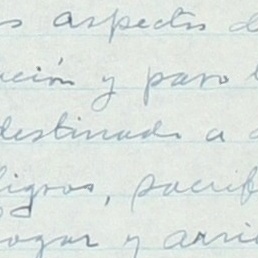 s aspectos d
ción y paro
destinado a
ligros, sacrif
ogar y arri